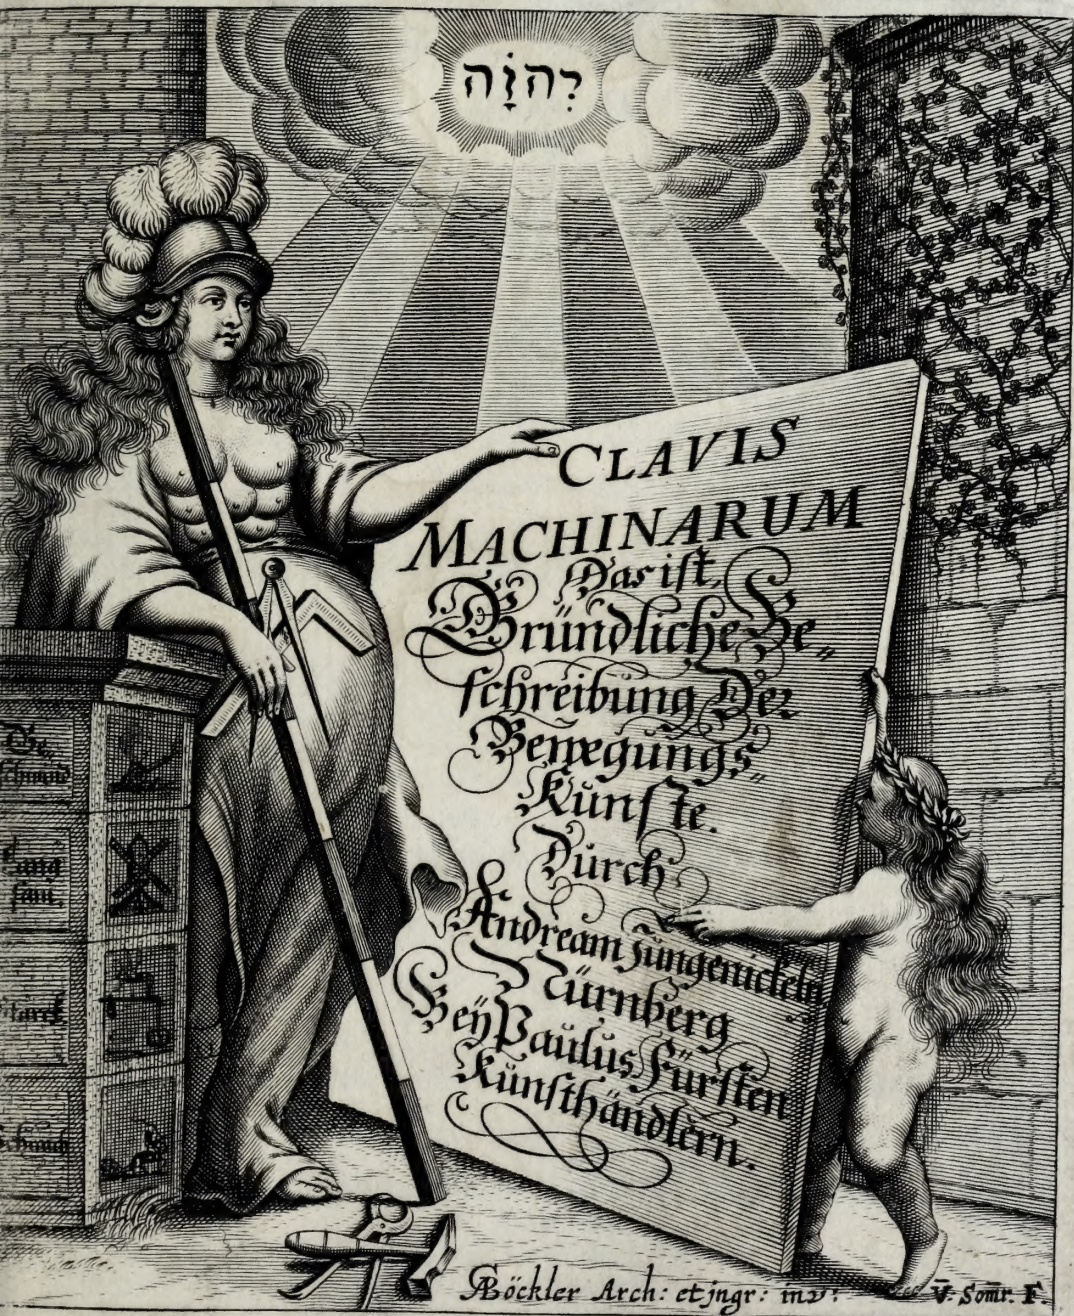 יְהוָֹה
CLAVIS
MACHINARUM
Das ist
Gründliche Be„
schreibung Der
Bewegungs„
Künste.
Durch
Andream Jungenickeln
Nürnberg
Beÿ Paulus Fürsten
Kunsthändlern.
Ge„
schwind
Lang
sam.
Starck
Schwach
GABöckler Arch: et jngr: inv:
V. Som̄r. F.